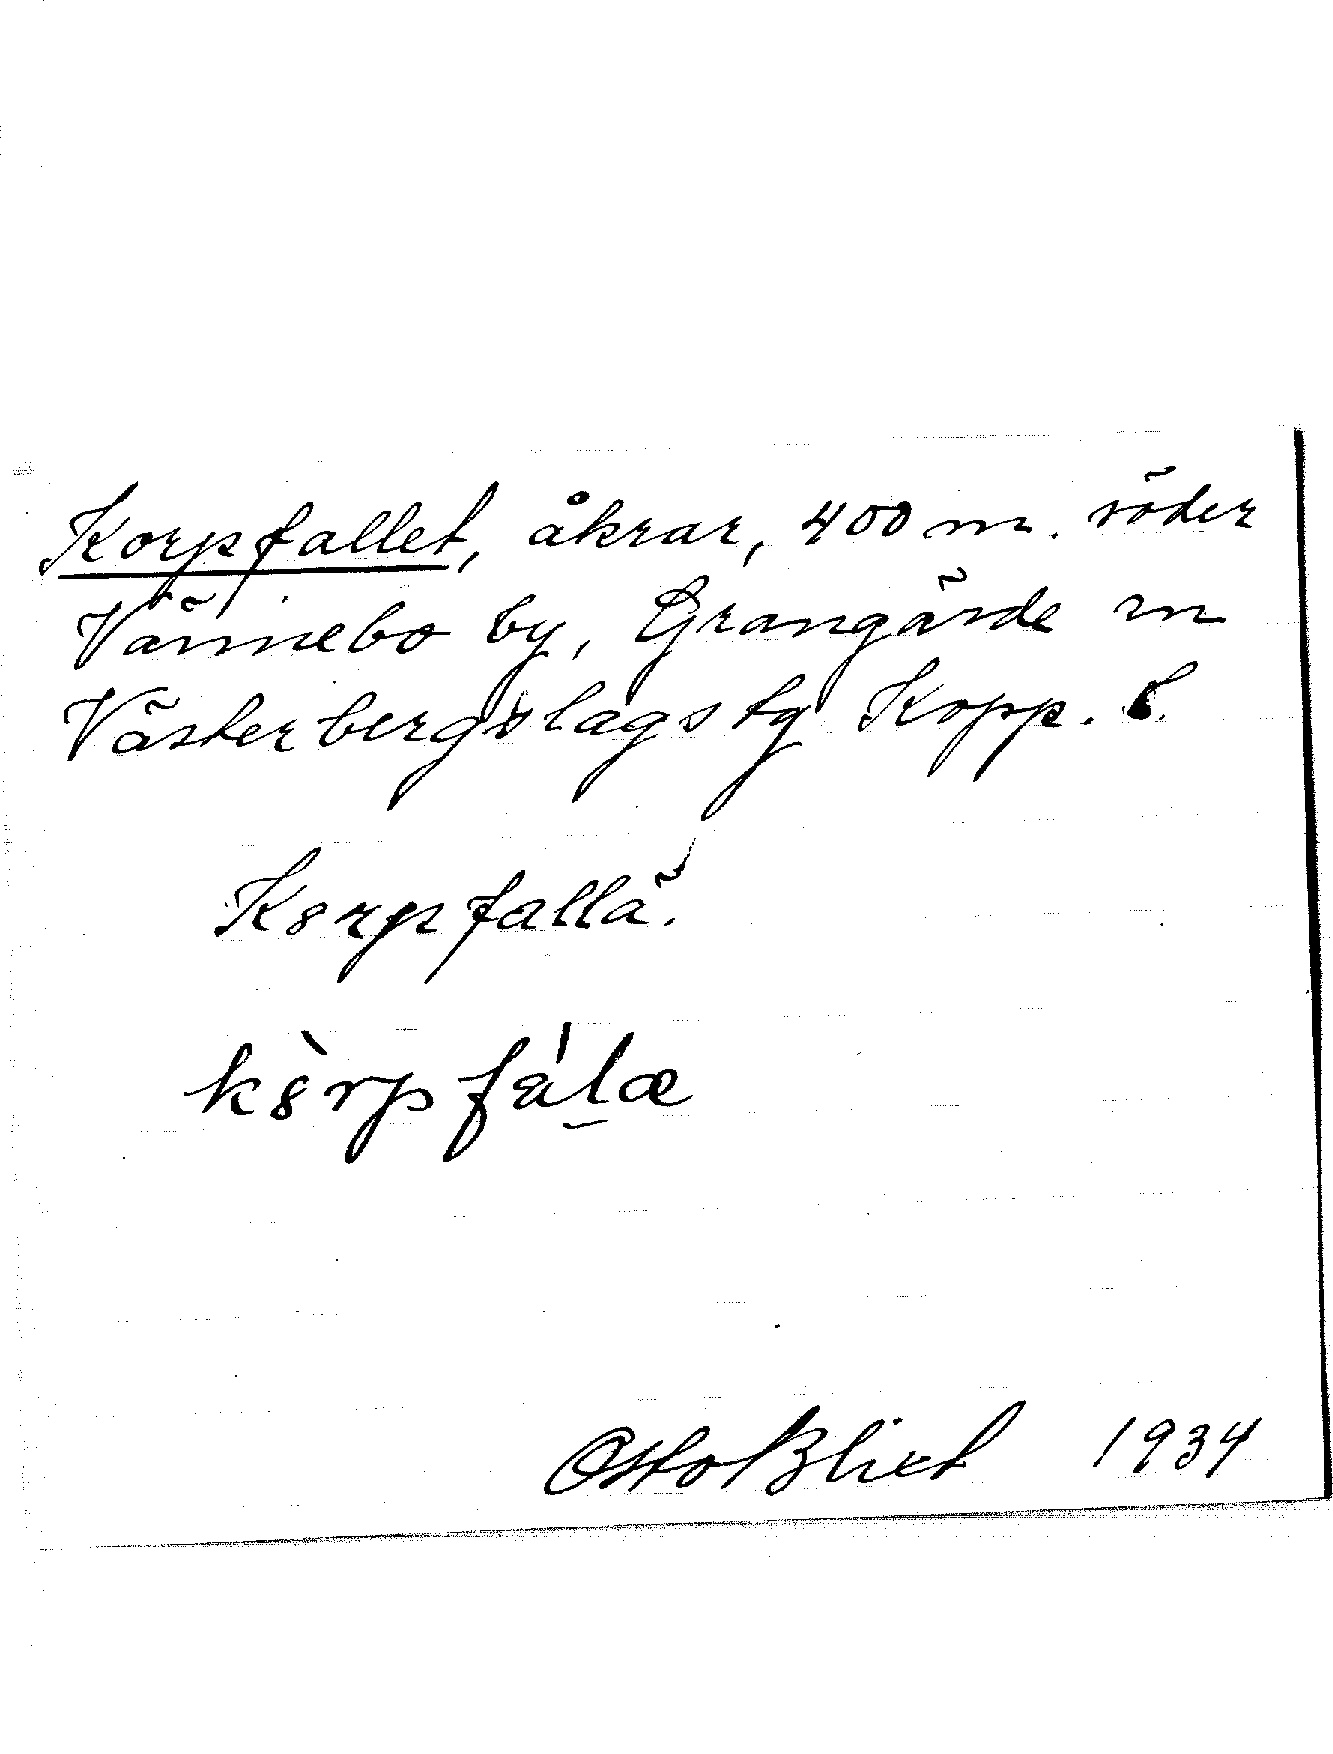 Korpfallet, åkrar, 400 m. söder
Vännebo by, Grangärde sn
Västerbergslags tg Kopp. l.
K8rpfallä.
k8̀rpfál̠æ
Otto Blixt 1934